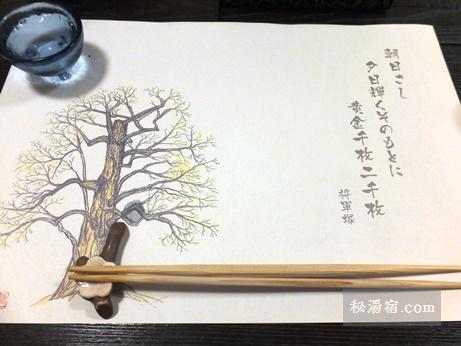 朝日さし
夕日輝くそのもとに
黄金千枚二千枚
将軍塚
秘湯宿.com